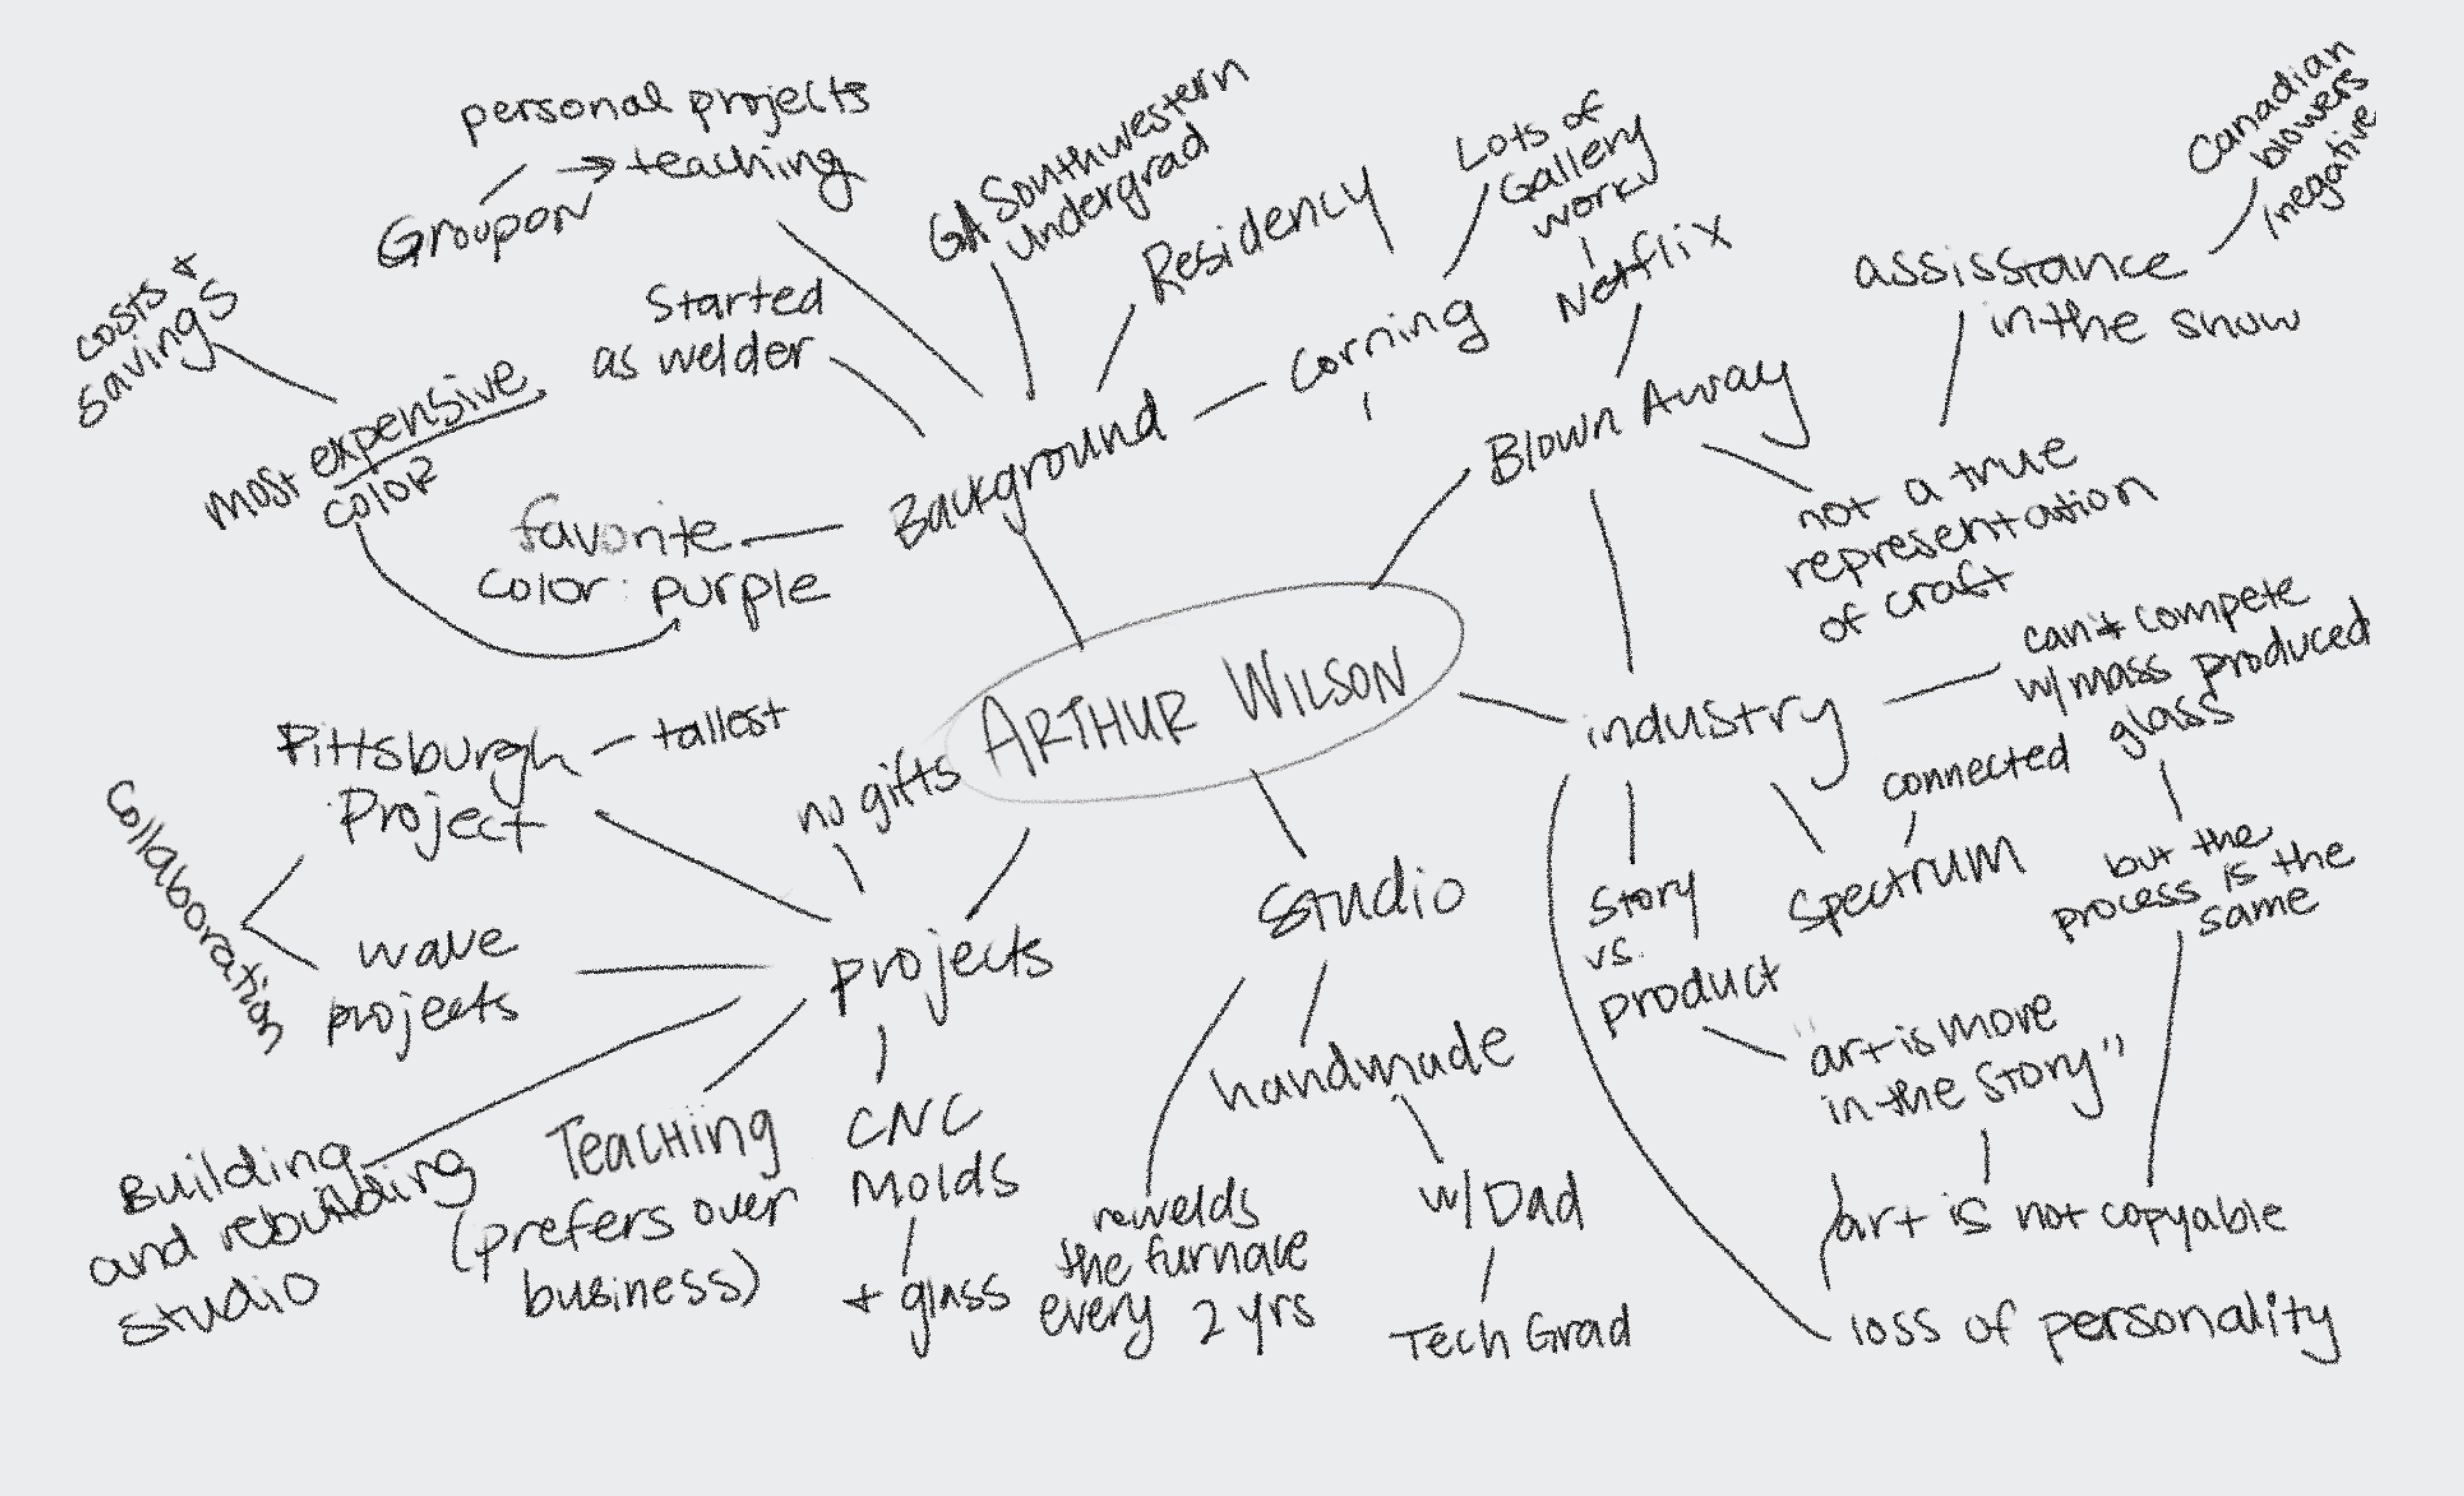 personal projects
→ teaching
Groupon
costs +
savings
most expensive
color
Started
as welder
favorite
color: purple
GA Southwestern
undergrad
Residency
Lots of
Gallery
work
Corning
Background
Netflix
Blown Away
Canadian
blowers
negative
assisstance
in the show
not a true
representation
of craft
ARTHUR WILSON
industry
can't compete
w/ mass produced
glass
but the
process is the
same
connected
Spectrum
Story
vs.
product
"art is more
in the story"
art is not copyable
loss of personality
Studio
handmade
w/ Dad
Tech Grad
rewelds
the furnace
every 2 yrs
no gifts
projects
Pittsburgh
Project
tallest
Collaboration
wave
projects
Building
and rebuilding
studio
Teaching
(prefers over
business)
CNC
Molds
+ glass